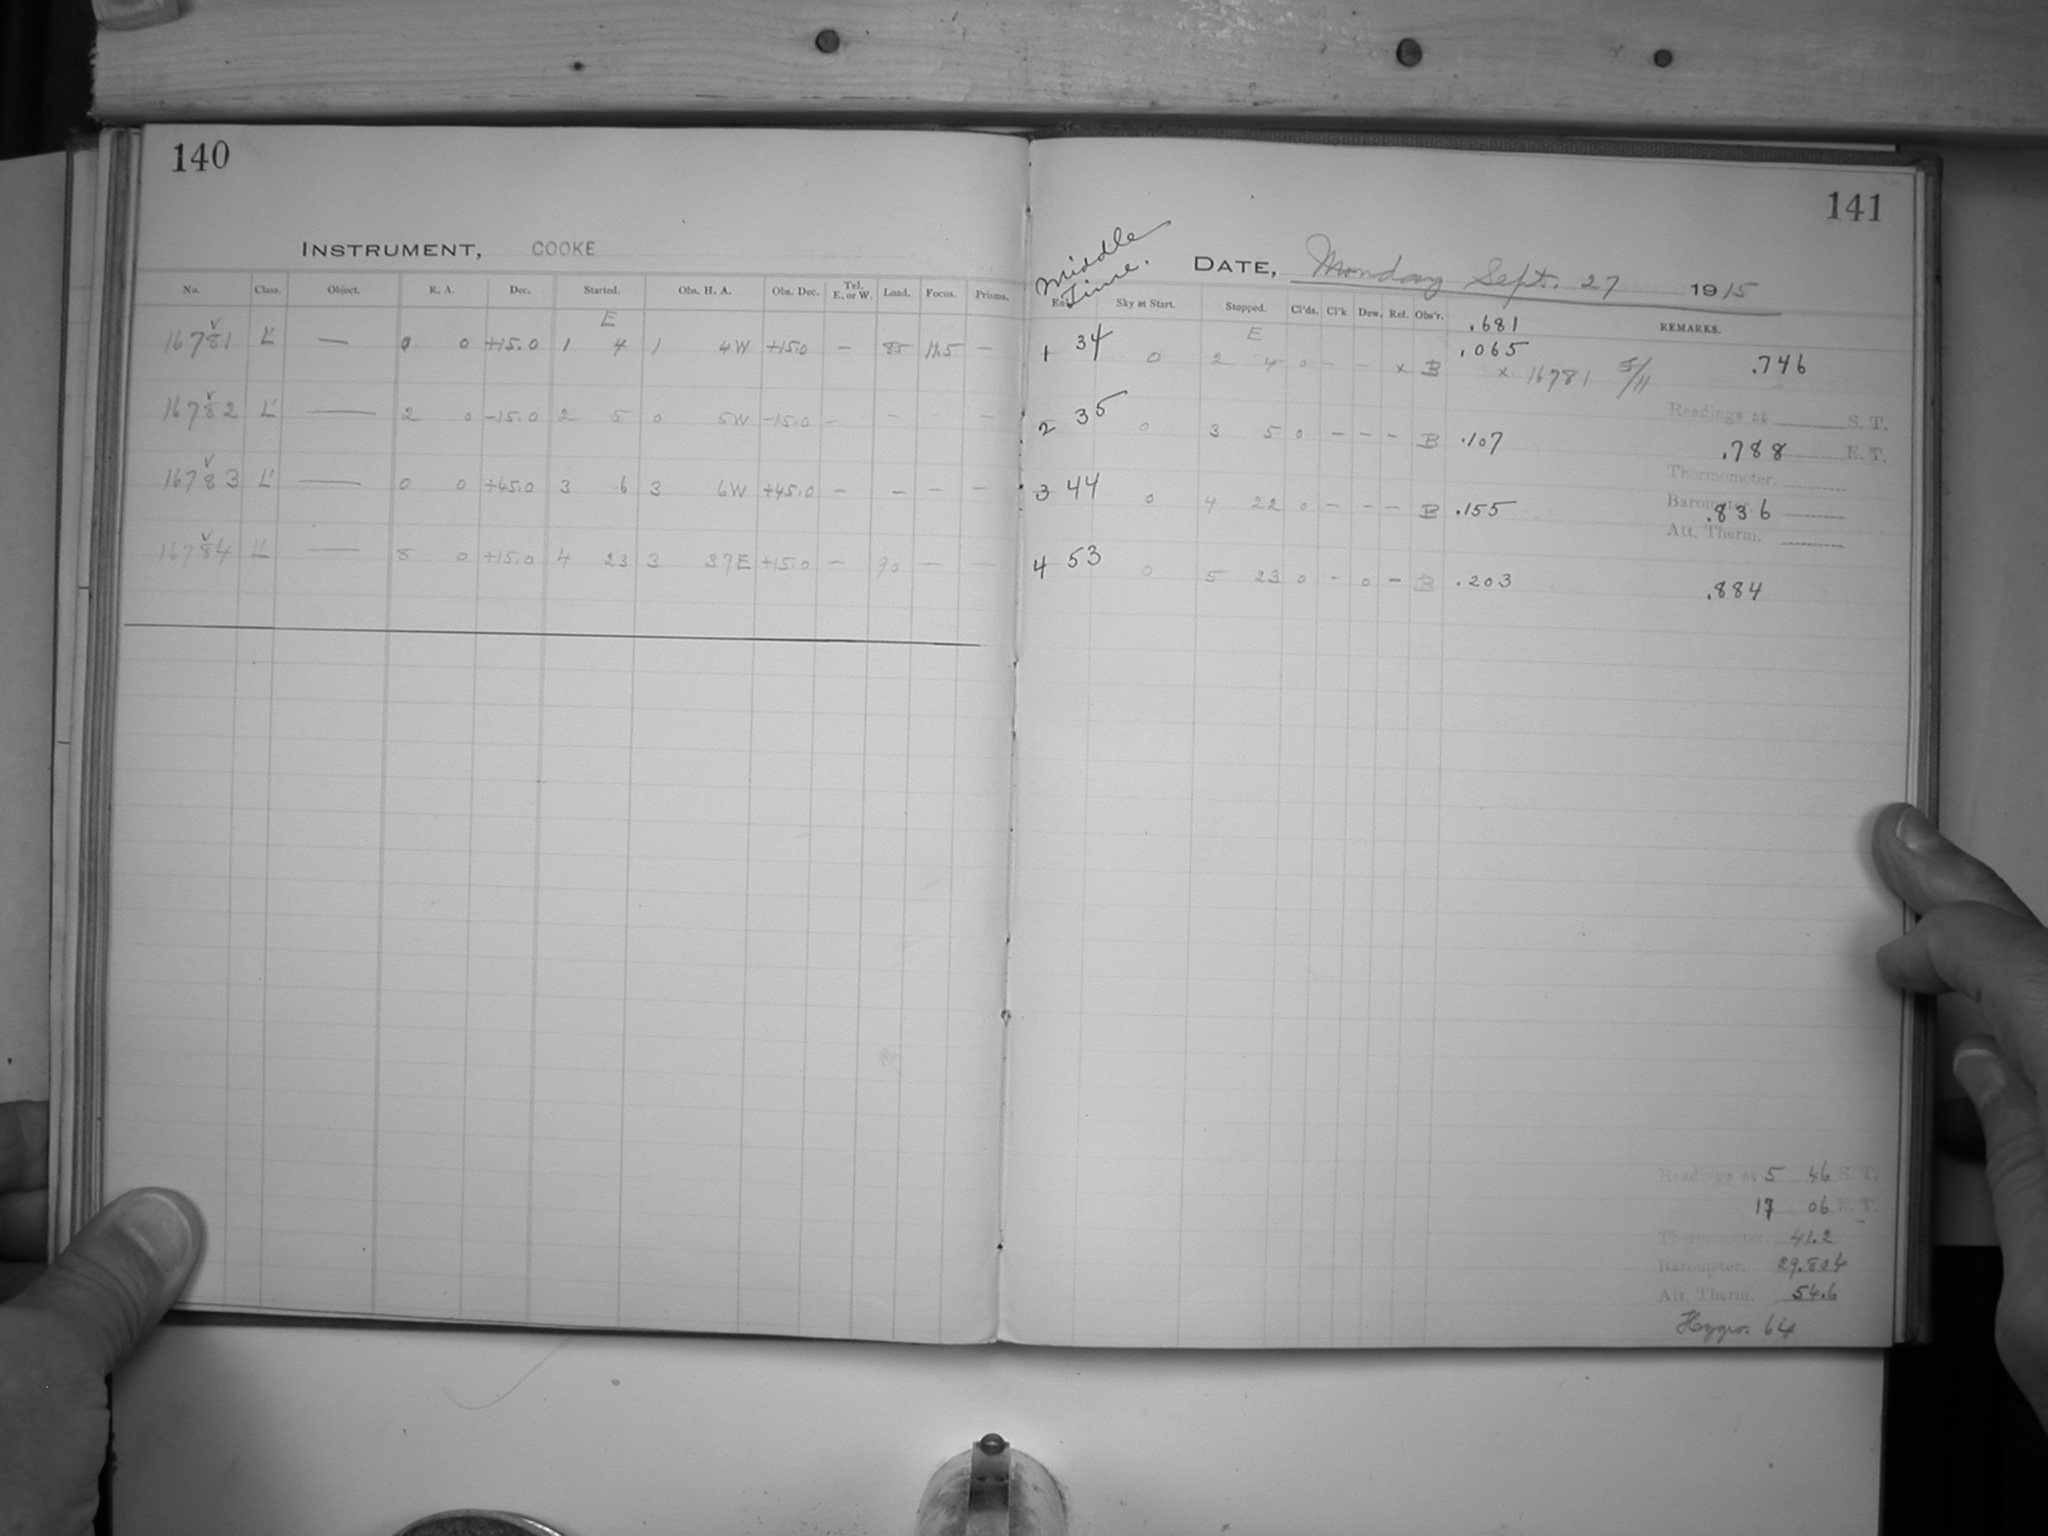 140
INSTRUMENT, COOKE
No. Class. Object. R. A. Dec. Started. Obs. H. A. Obs. Dec. Tel. E. or W. Load. Focus. Prisms.
E
16781 L' — 0 0 +15.0 1 4 1 4W +15.0 — 85 11.5 —
16782 L' — 2 0 -15.0 2 5 0 5W -15.0 - - —
16783 L' — 0 0 +45.0 3 6 3 6W +45.0 — — — —
16784 L' — 8 0 +15.0 4 23 3 37E +15.0 — 90 — —
141
Middle Time.
DATE, Monday Sept. 27 1915
Sky at Start. Stopped. Cl'ds. Cl'k Dew. Ref. Obs'r. REMARKS.
E .681
1 34 0 2 4 0 - - x B .065 x 16781 5/11 .746
Readings at S. T.
2 35 0 3 5 0 - - - B .107 .788 E. T.
Thermometer.
3 44 0 4 22 0 - - - B .155 Barometer. .836
Att. Therm.
4 53 0 5 23 0 - 0 - B .203 .884
Readings at 5 46 S. T.
17 06 E. T.
Thermometer. 41.2
Barometer. 29.804
Att. Therm. 54.6
Hygro. 64